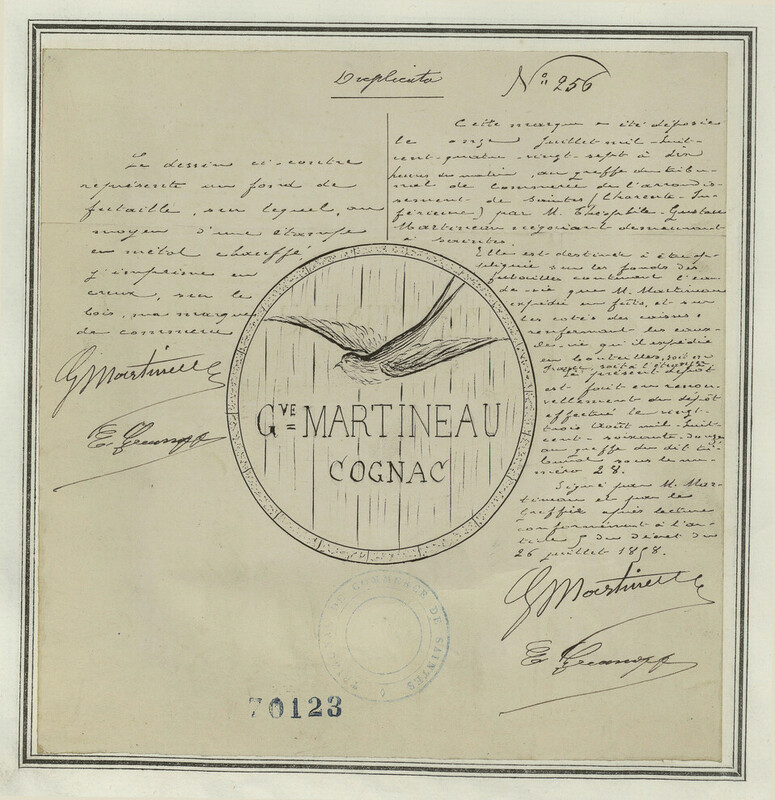 Duplicata
N° 256
Le dessin ci-contre
représente un fond de
futaille, sur lequel, au
moyen d'une étampe
en métal chauffé,
j'imprime en
creux, sur le
bois, ma marque
de commerce
G Martineau
Cette marque a été déposée
le onze Juillet mil-huit-
cent-quatre-vingt-sept à dix
heures du matin, au greffe du tribu-
nal de commerce de l'arrondis-
sement de Saintes (Charente-In-
férieure) par M. Théophile-Gustave
Martineau négociant demeurant
à Saintes.
Elle est destinée à être ap-
pliquée sur les fonds des
futailles contenant l'eau-
de-vie que M. Martineau
expédie en fûts, et sur
les cotés des caisses
renfermant les eaux-
de-vie qu'il expédie
en bouteilles, soit en
france, soit à l'étranger
Le présent dépôt
est fait en renou-
vellement du dépôt
effectué le vingt-
trois Août mil-huit-
cent-soixante-douze
au greffe du dit tri-
bunal sous le nu-
méro 28.
Signé par M. Mar-
tineau et par le
Greffier après lecture
conformément à l'ar-
ticle 5 du décret du
26 juillet 1858.
G Martineau
GVE MARTINEAU
COGNAC
TRIBUNAL DE COMMERCE DE SAINTES
70123